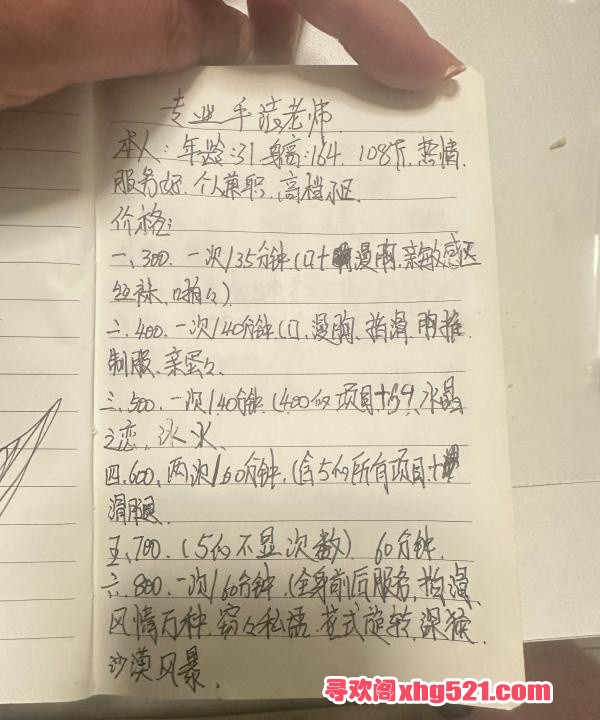 专业手法老师
本人：年龄:31 身高:164. 108斤, 热情.
服务好. 个人兼职, 高档小区.
价格:
一、300. 一次/35分钟(口+漫胸. 亲敏感区
丝袜、啪々)
二、400. 一次/40分钟(口、漫胸、指滑. 胸推
制服、亲蛋々
三、500. 一次/40分钟(400的项目+69, 水晶
之恋、冰火、
四.600、两次/60分钟.(含5的所有项目+
滑腿
五、700.(5的不显次数) 60分钟.
六、800. 一次/60分钟(全身前后服务, 指漫
风情万种, 窃々私语, 花式旋转, 深喉
沙漠风暴.
寻欢阁xhg521.com